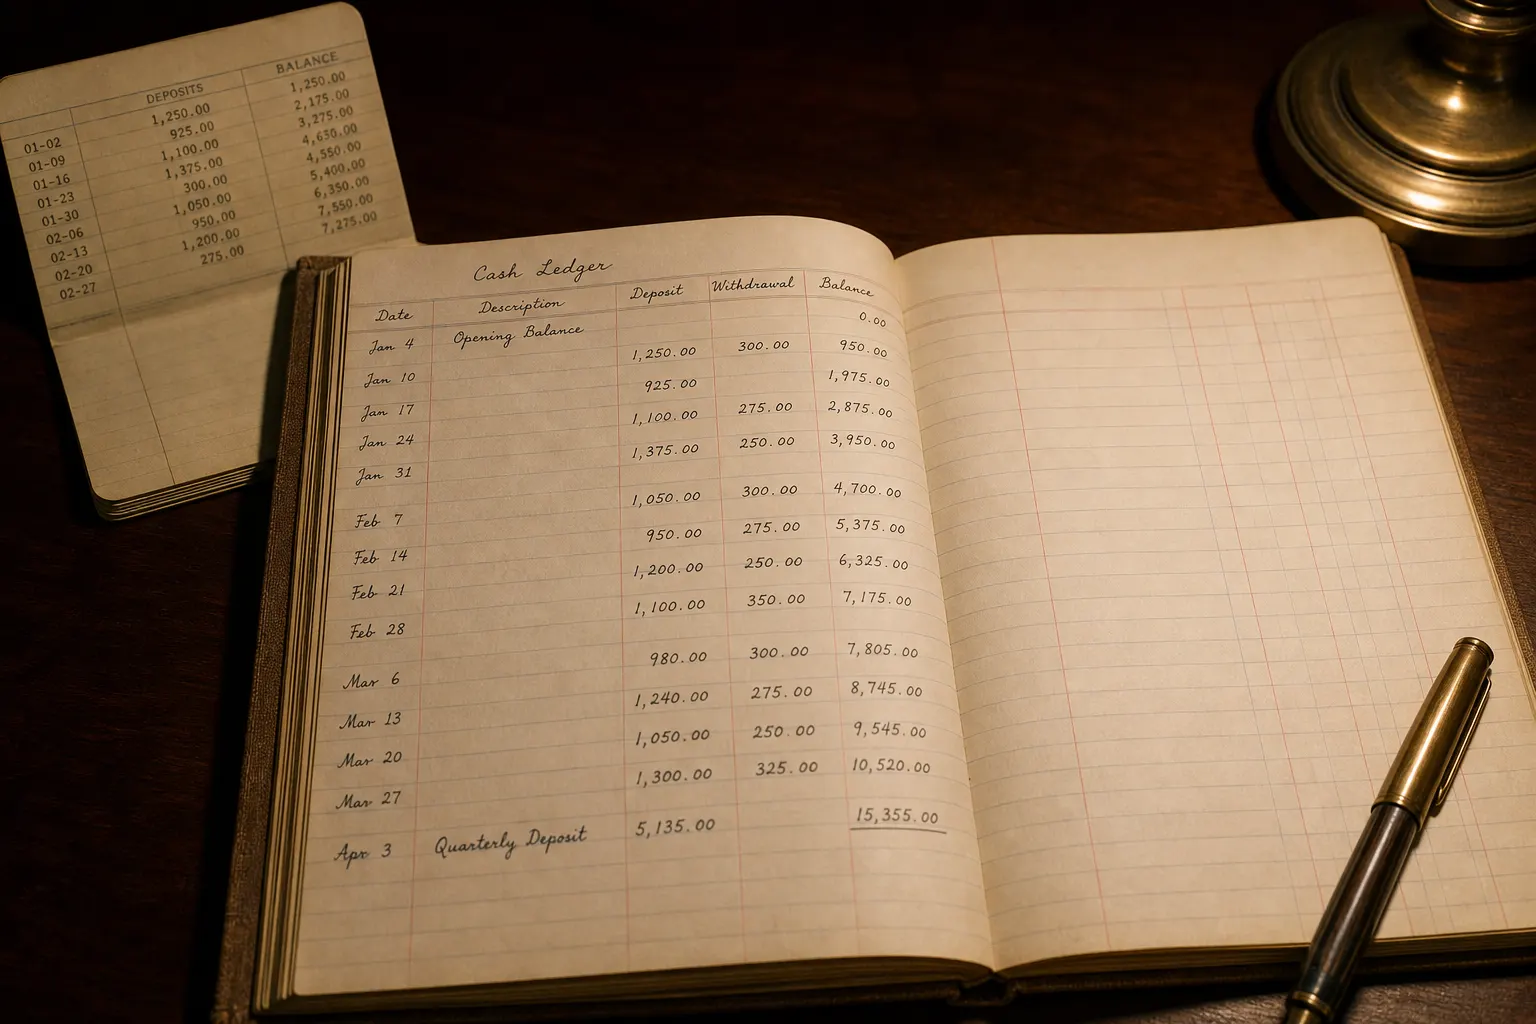 DEPOSITS BALANCE
01-02 1,250.00 1,250.00
01-09 925.00 2,175.00
01-16 1,100.00 3,275.00
01-23 1,375.00 4,630.00
01-30 300.00 4,550.00
02-06 1,050.00 5,400.00
02-13 950.00 6,350.00
02-20 1,200.00 7,550.00
02-27 275.00 7,275.00
Cash Ledger
Date Description Deposit Withdrawal Balance
Jan 4 Opening Balance 0.00
1,250.00 300.00 950.00
Jan 10 925.00 1,975.00
Jan 17 1,100.00 275.00 2,875.00
Jan 24 1,375.00 250.00 3,950.00
Jan 31
1,050.00 300.00 4,700.00
Feb 7 950.00 275.00 5,375.00
Feb 14 1,200.00 250.00 6,325.00
Feb 21 1,100.00 350.00 7,175.00
Feb 28
980.00 300.00 7,805.00
Mar 6 1,240.00 275.00 8,745.00
Mar 13 1,050.00 250.00 9,545.00
Mar 20 1,300.00 325.00 10,520.00
Mar 27
Apr 3 Quarterly Deposit 5,135.00 15,355.00